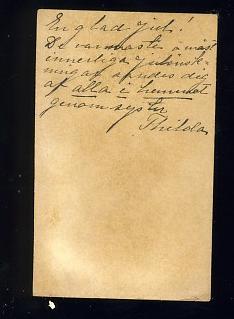 En glad Jul!
De varmaste o mäst
innerliga julönsk-
ningar sändes dig
af alla i hemmet
genom syster
Thilda